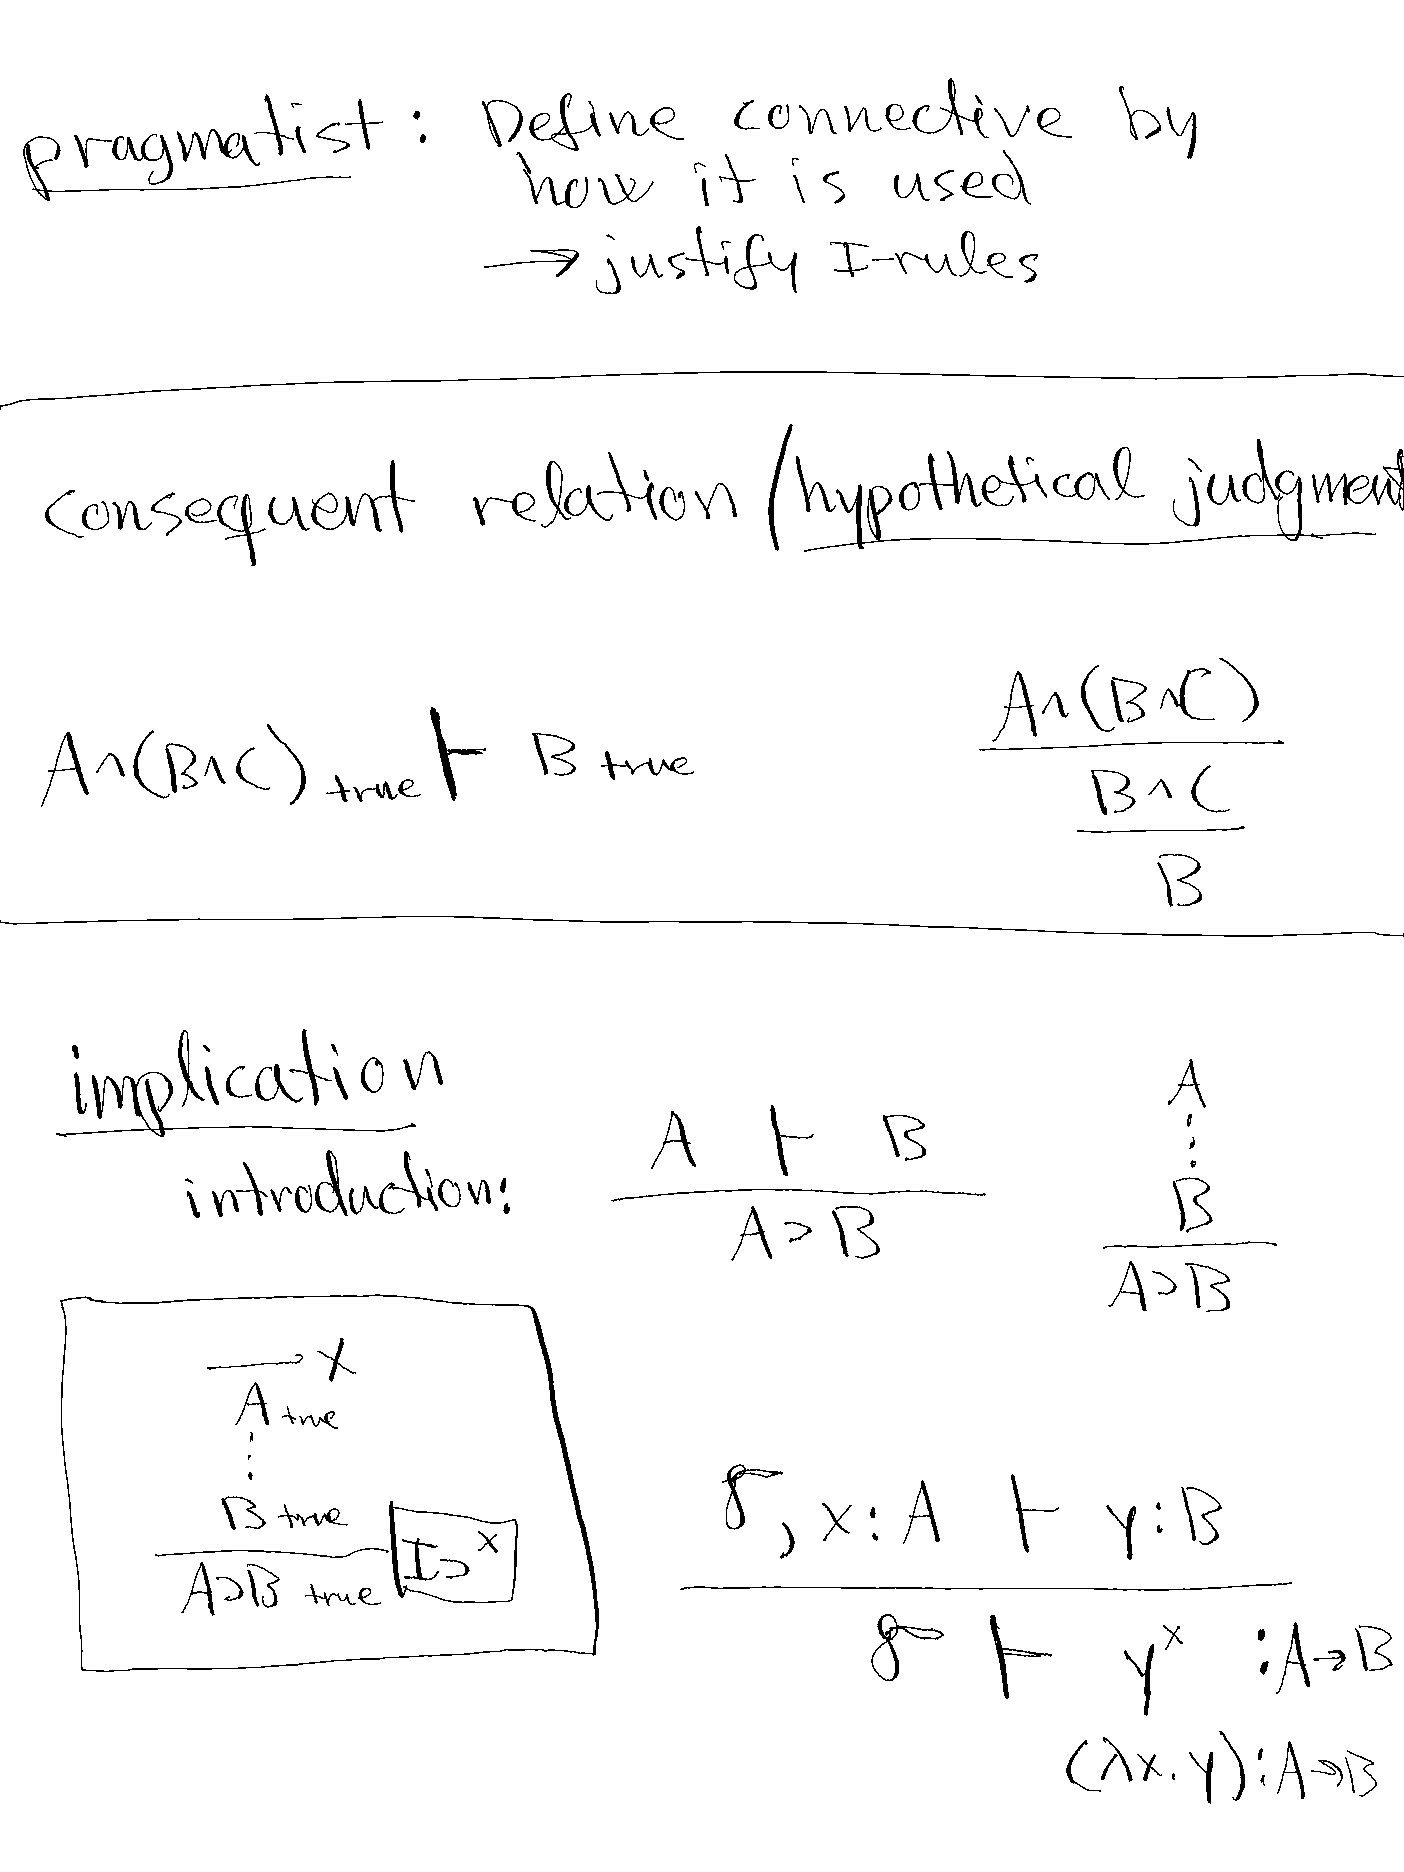 pragmatist: Define connective by
how it is used
→ justify I-rules
consequent relation / hypothetical judgment
A∧(B∧C) true ⊢ B true
A∧(B∧C)
B∧C
B
implication
introduction:
A ⊢ B
A⊃B
A
⋮
B
A⊃B
x
A true
⋮
B true
A⊃B true I⊃ˣ
γ, x:A ⊢ y:B
γ ⊢ yˣ :A→B
(λx.y):A→B